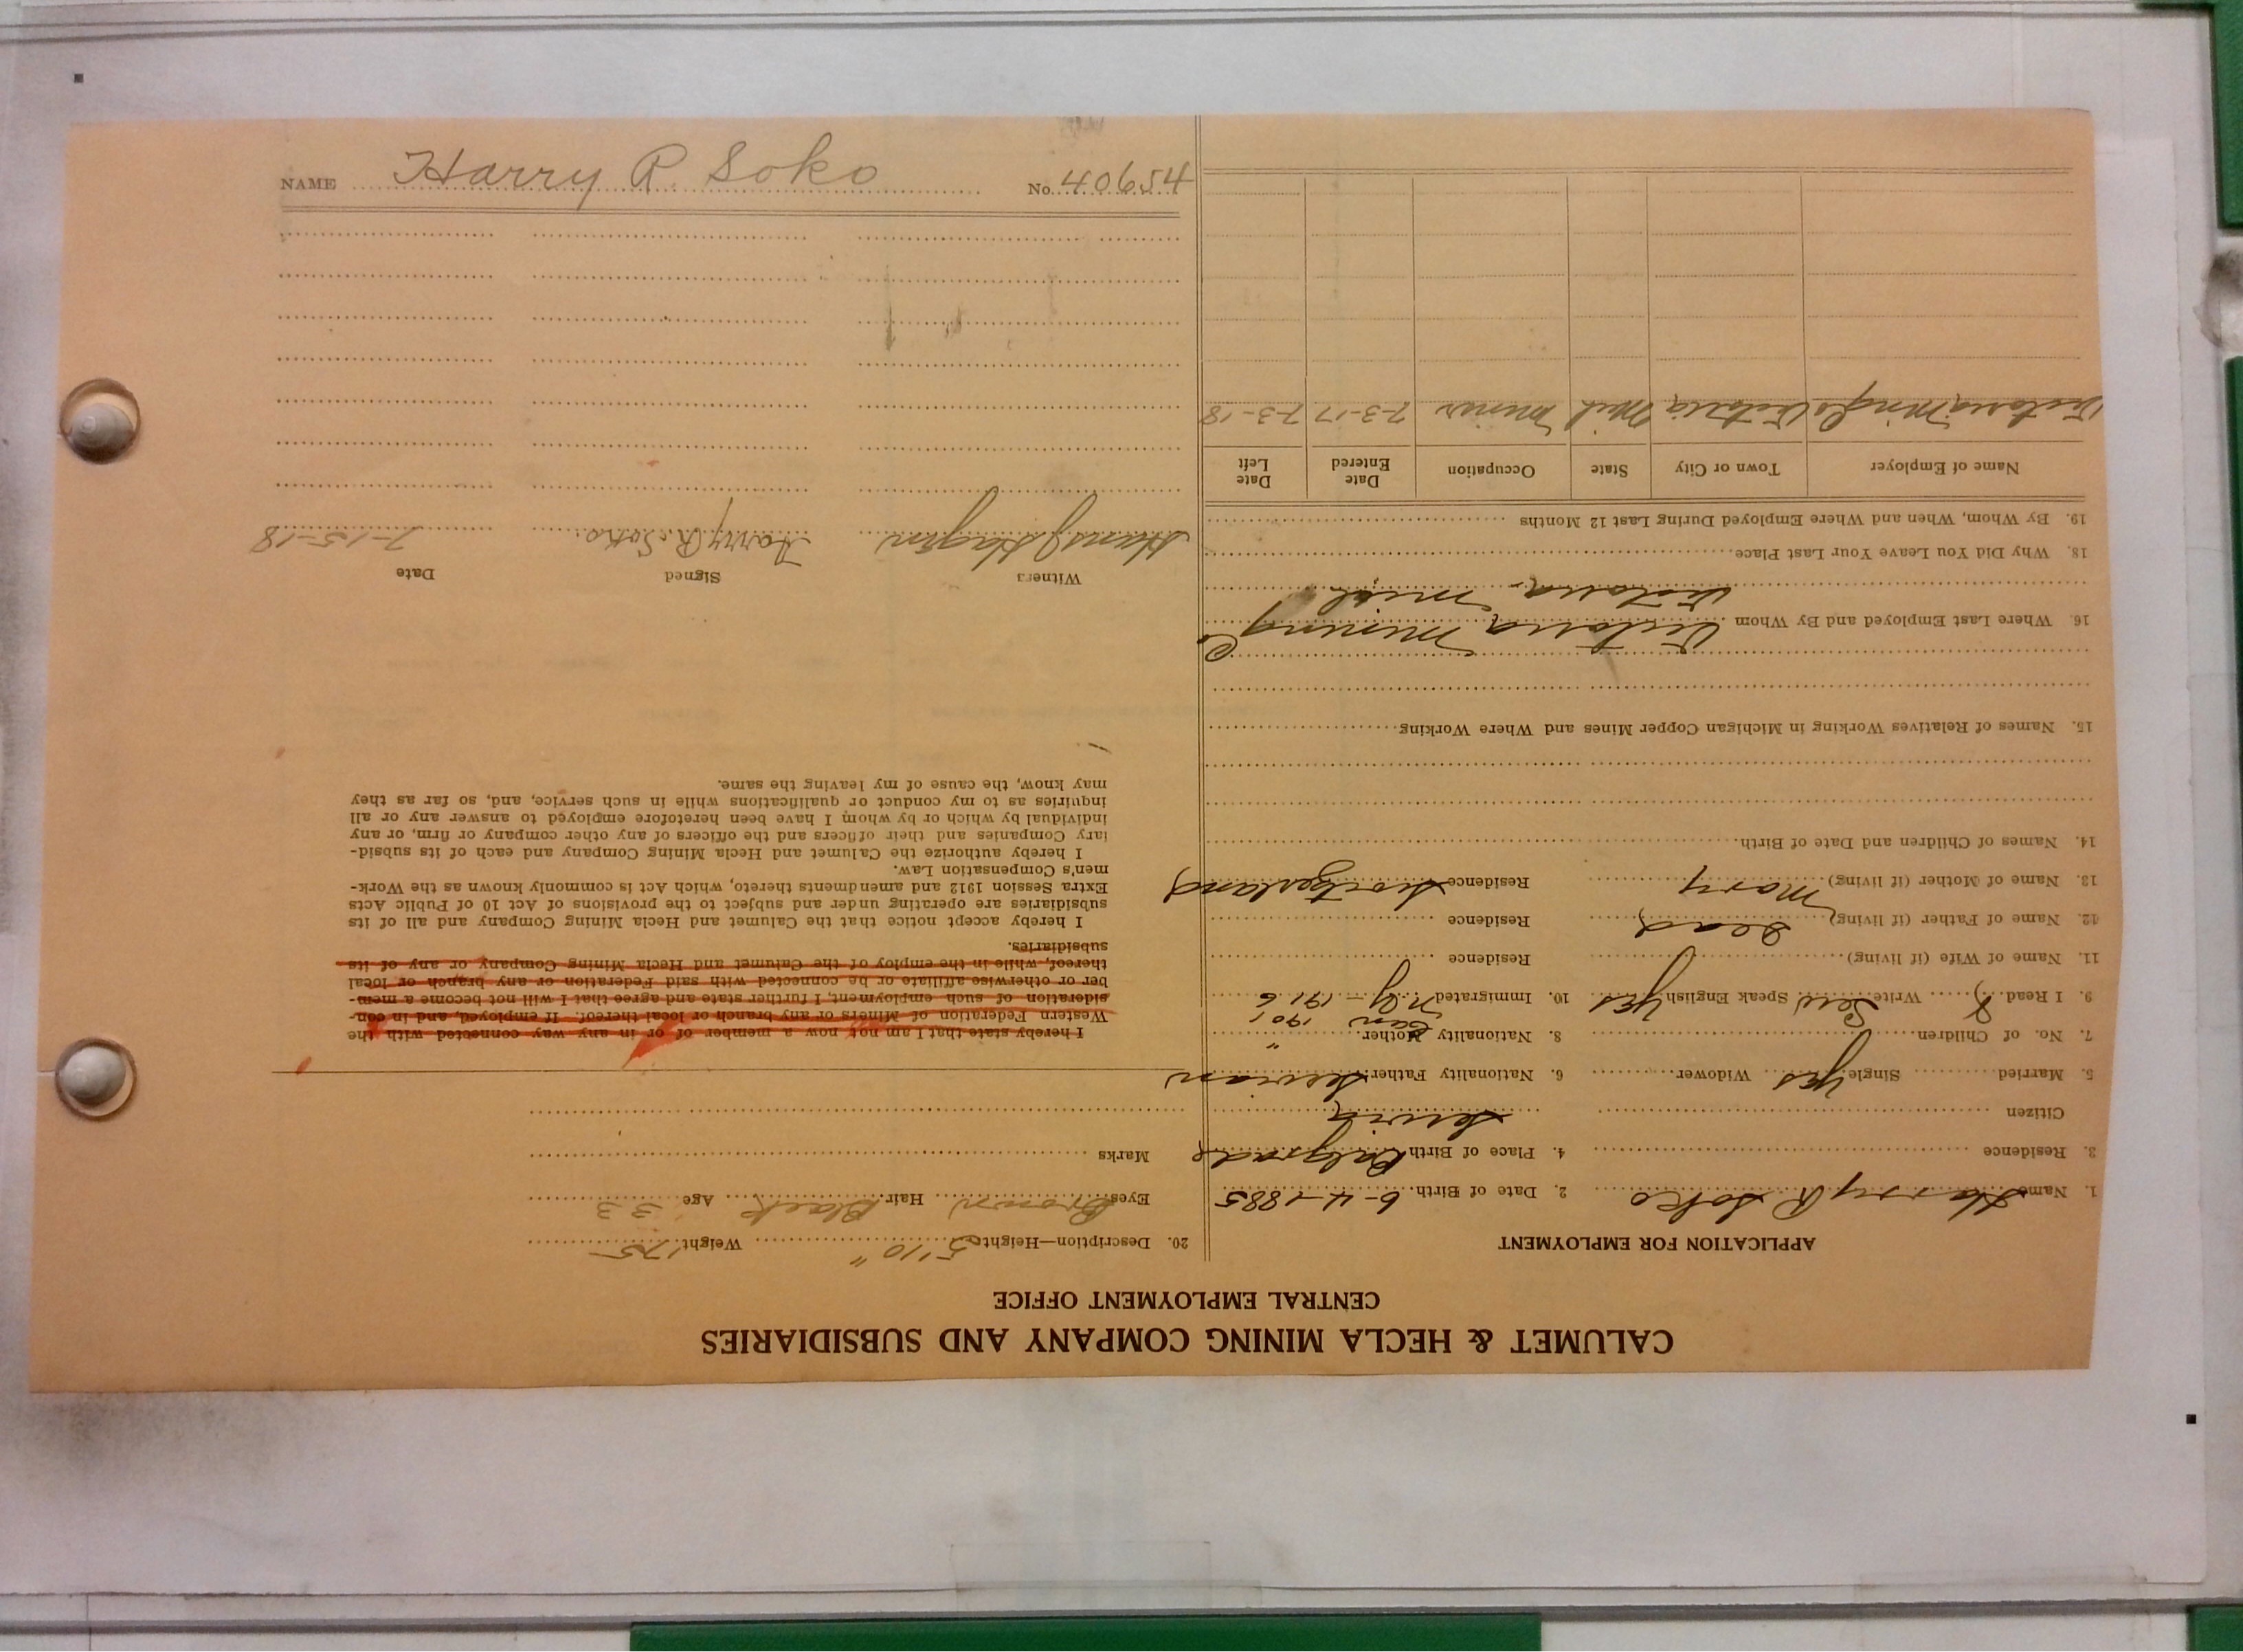 NAME Harry R. Soko No. 40654
CALUMET & HECLA MINING COMPANY AND SUBSIDIARIES
CENTRAL EMPLOYMENT OFFICE
APPLICATION FOR EMPLOYMENT
1. Name Harry R Soko 2. Date of Birth 6-4-1885
3. Residence 4. Place of Birth Belgrade
Citizen Servia
5. Married Single yes Widower 6. Nationality Father Servian
7. No. of Children 8. Nationality Mother "
9. I Read Write Serv Speak English yes 10. Immigrated N.Y. - 1916
Can 1901
11. Name of Wife (if living) Residence
12. Name of Father (if living) Dead Residence
13. Name of Mother (if living) Mary Residence Switzerland
14. Names of Children and Date of Birth
15. Names of Relatives Working in Michigan Copper Mines and Where Working
16. Where Last Employed and By Whom Victoria Mining Co
Victoria Mich
18. Why Did You Leave Your Last Place
19. By Whom, When and Where Employed During Last 12 Months
Name of Employer Town or City State Occupation Date Entered Date Left
Victoria Mng Co Victoria Mich Miner 7-3-17 7-3-18
20. Description—Height 5'10" Weight 175
Eyes Brown Hair Black Age 33
Marks
I hereby state that I am not now a member of or in any way connected with the
Western Federation of Miners or any branch or local thereof. If employed, and in con-
sideration of such employment, I further state and agree that I will not become a mem-
ber or otherwise affiliate or be connected with said Federation or any branch or local
thereof, while in the employ of the Calumet and Hecla Mining Company or any of its
subsidiaries.
I hereby accept notice that the Calumet and Hecla Mining Company and all of its
subsidiaries are operating under and subject to the provisions of Act 10 of Public Acts
Extra Session 1912 and amendments thereto, which Act is commonly known as the Work-
men's Compensation Law.
I hereby authorize the Calumet and Hecla Mining Company and each of its subsid-
iary Companies and their officers and the officers of any other company or firm, or any
individual by which or by whom I have been heretofore employed to answer any or all
inquiries as to my conduct or qualifications while in such service, and, so far as they
may know, the cause of my leaving the same.
Witness Signed Date
Hans J Hagen Harry R. Soko. 7-15-18